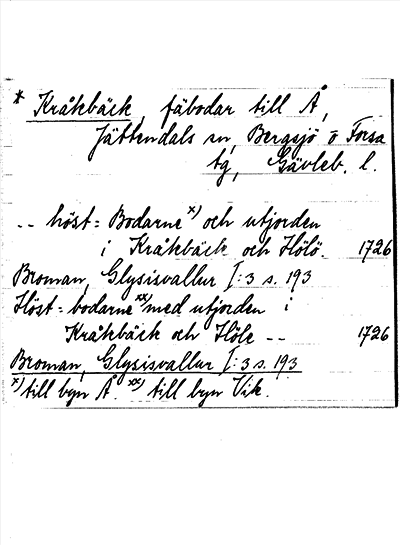 * Kråkbäck, fäbodar till Å,
Jättendals sn, Bergsjö o Forsa
tg, Gävleb. l.
-- höst= Bodarne x) och utjorden
i Kråkbäck och Hölö. 1726
Broman, Glysisvallur I:3 s. 193
Höst=bodarne xx) med utjorden i
Kråkbäck och Höle -- 1726
Broman, Glysisvallur I:3 s. 193
x) till byn Å. xx) till byn Vik.